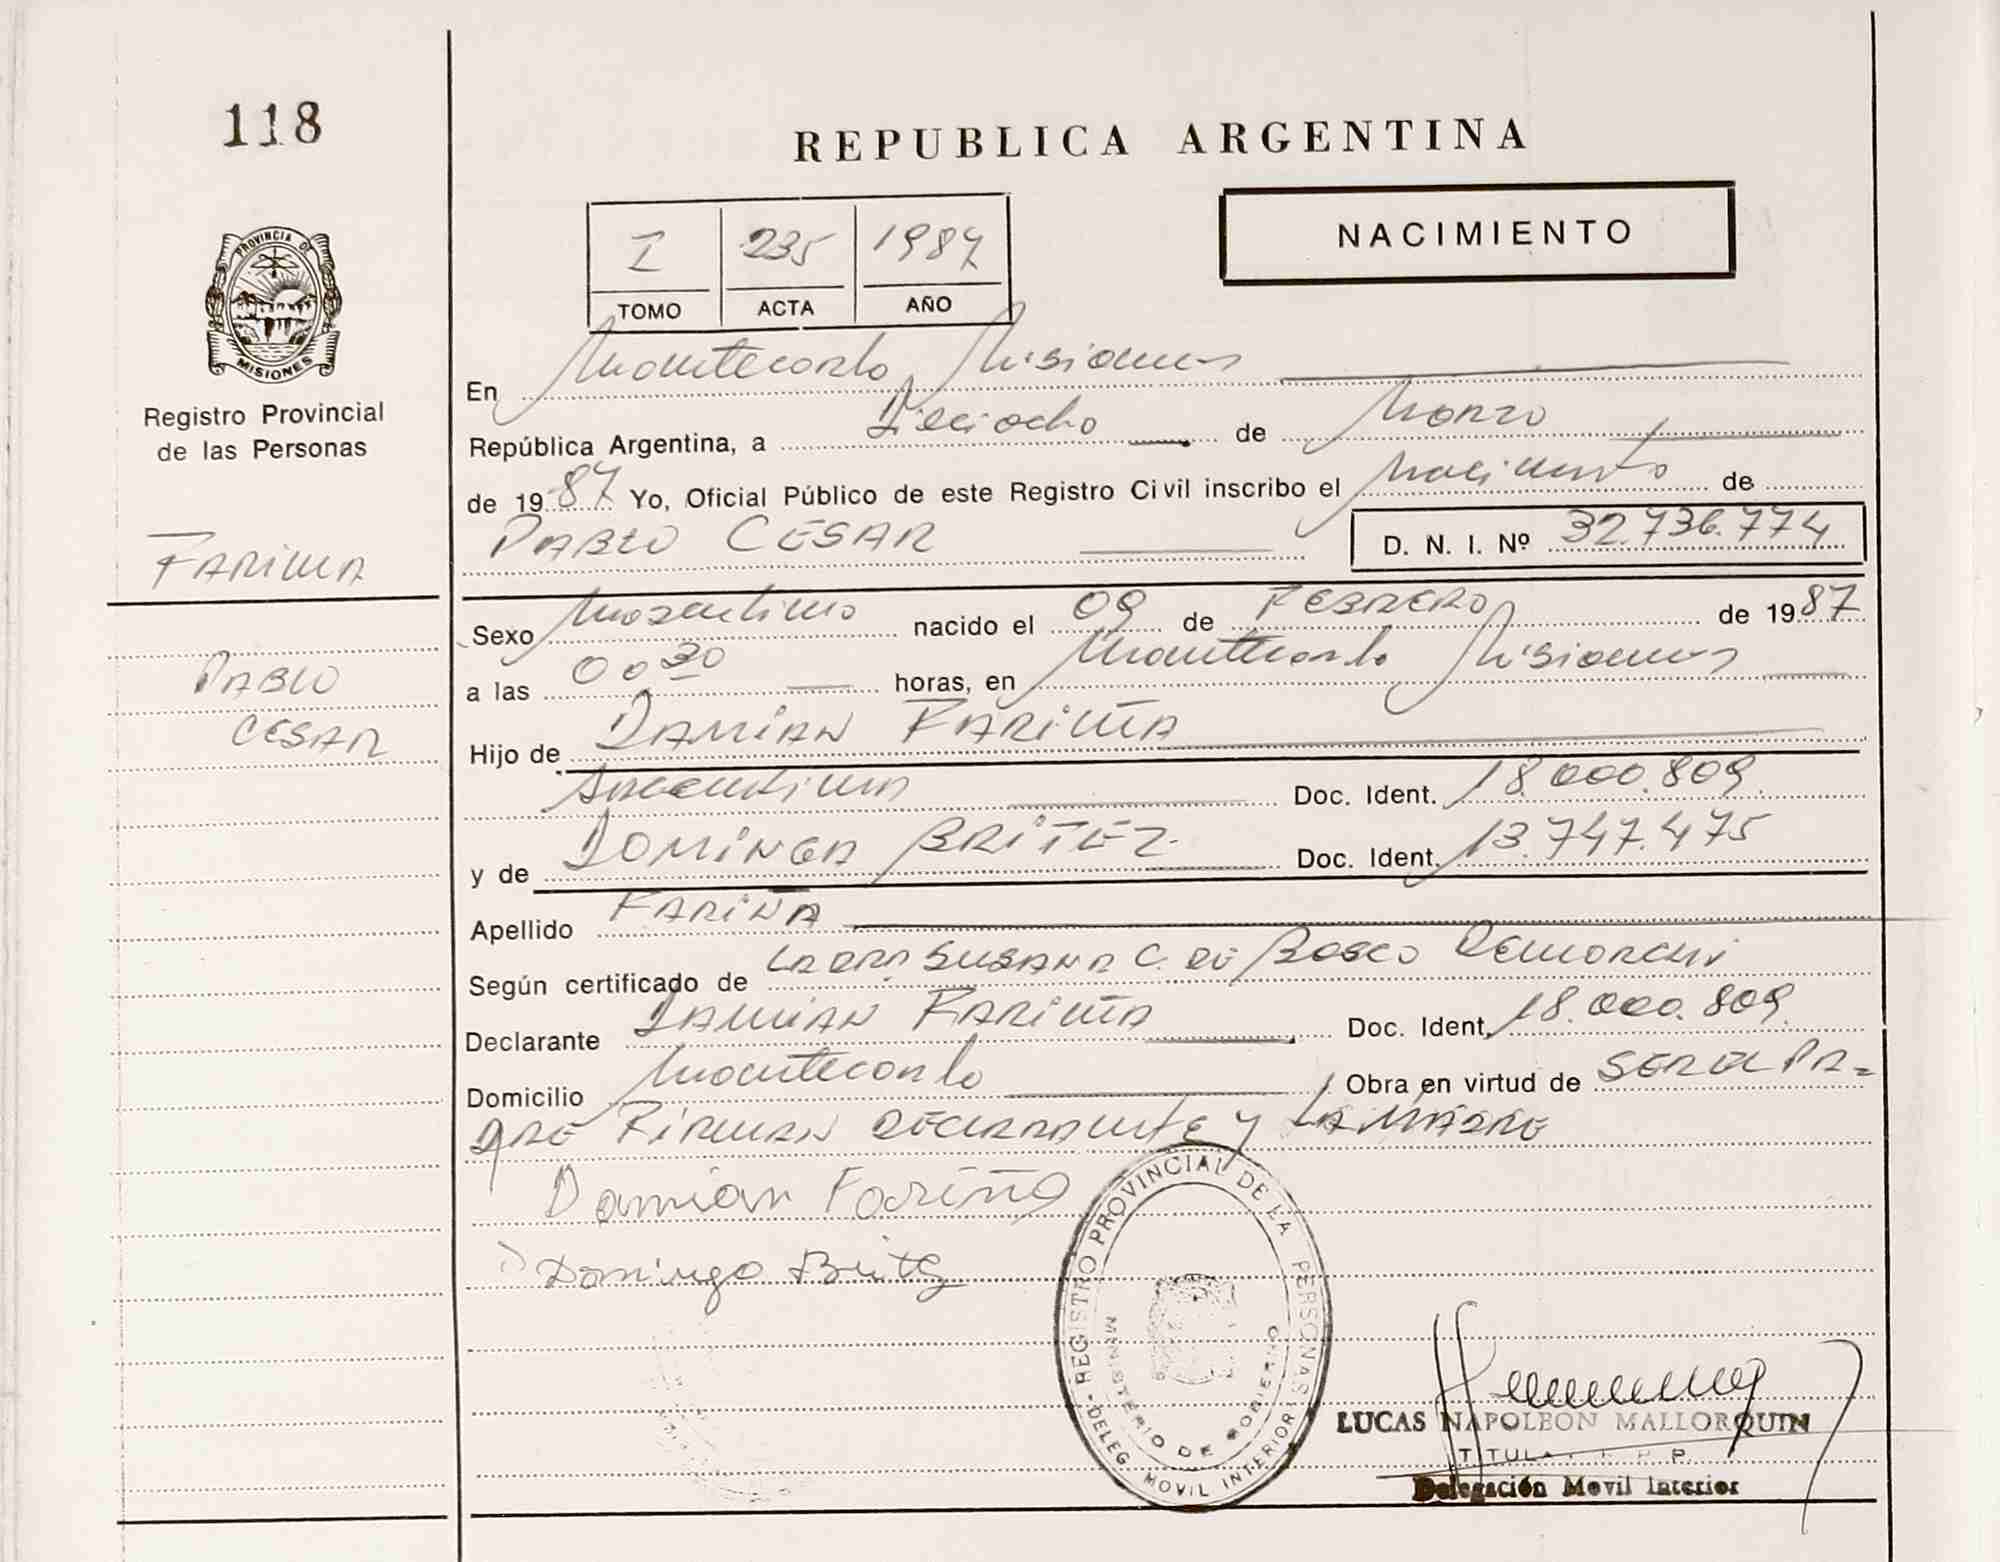 118
REPUBLICA ARGENTINA
NACIMIENTO
I 235 1987
TOMO ACTA AÑO
PROVINCIA DE MISIONES
Registro Provincial
de las Personas
FARIÑA
PABLO
CESAR
En Montecarlo, Misiones
República Argentina, a Dieciocho de Marzo
de 1987 Yo, Oficial Público de este Registro Civil inscribo el nacimiento de
PABLO CESAR D. N. I. Nº 32.736.774
Sexo Masculino nacido el 09 de FEBRERO de 1987
a las 00 30 horas, en Montecarlo Misiones
Hijo de DAMIAN FARIÑA
Argentina Doc. Ident. 18.000.809
y de DOMINGA BRITEZ Doc. Ident. 13.747.475
Apellido FARIÑA
Según certificado de LA DRA SUSANA C. DE BOSCO DEMORCHI
Declarante DAMIAN FARIÑA Doc. Ident. 18.000.809
Domicilio Montecarlo Obra en virtud de SER EL PA=
DRE FIRMAN DECLARANTE Y LA MADRE
Damian Fariña
Dominga Britez
REGISTRO PROVINCIAL DE LA PERSONAS
MINISTERIO DE GOBIERNO
DELEG. MOVIL INTERIOR
LUCAS NAPOLEON MALLORQUIN
Delegación Movil Interior